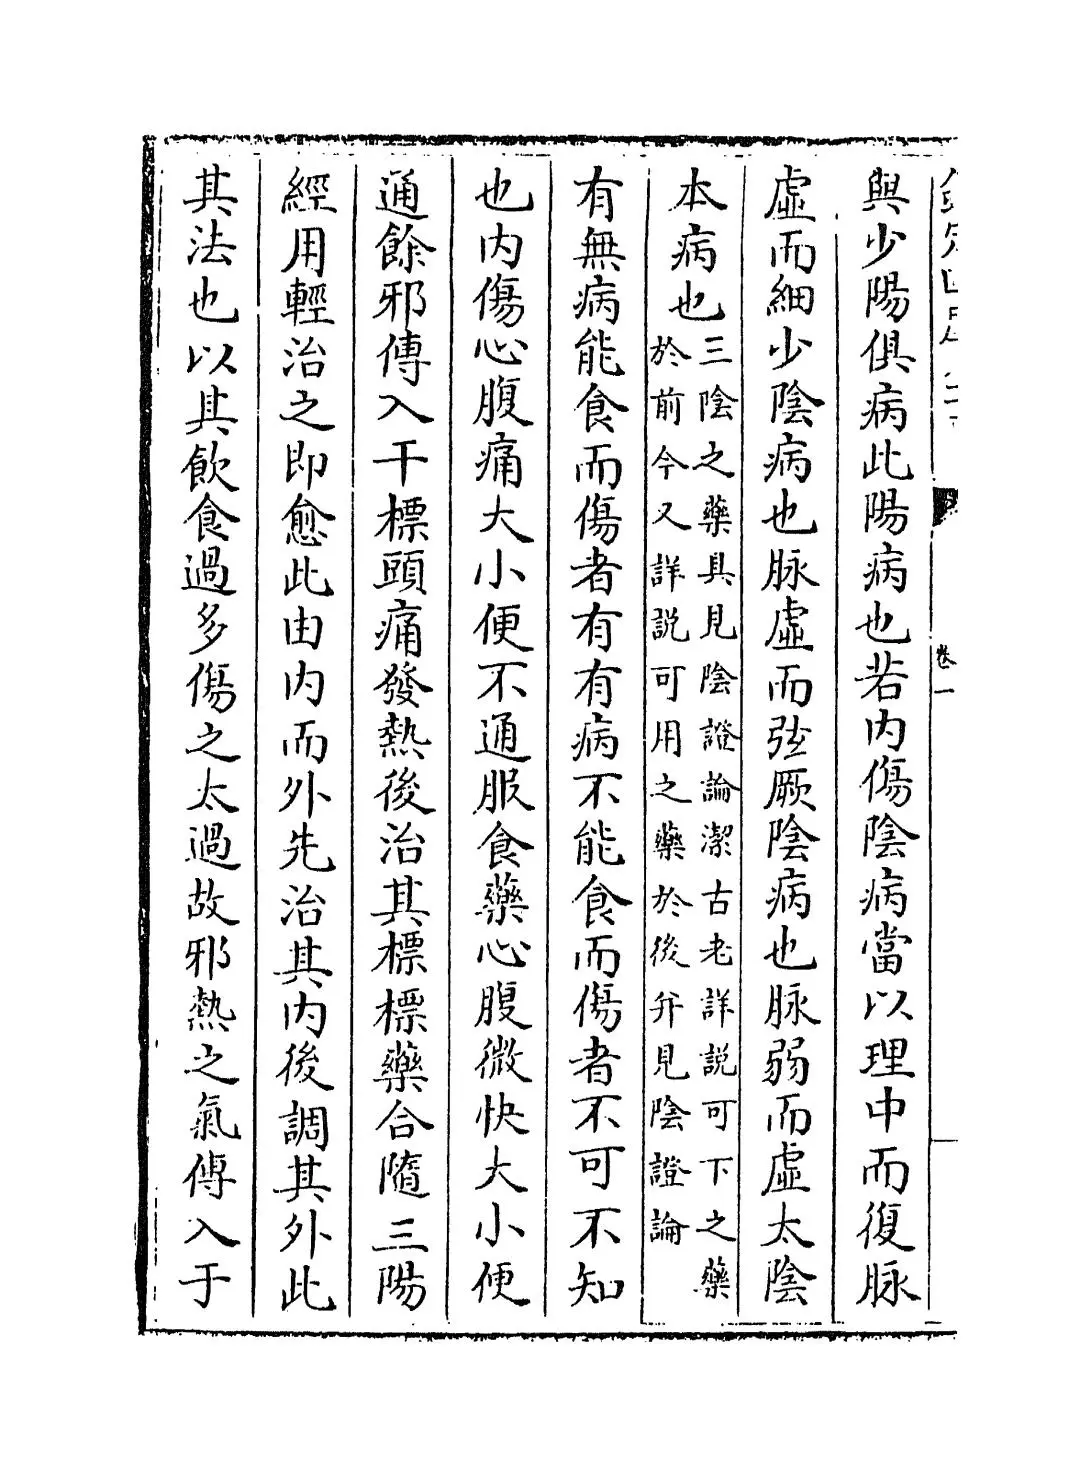 卷一
與少陽俱病此陽病也若内傷陰病當以理中而復脉
虛而細少陰病也脉虛而弦厥陰病也脉弱而虛太陰
本病也三陰之藥具見陰證論潔古老詳説可下之藥
於前今又詳説可用之藥於後并見陰證論
有無病能食而傷者有有病不能食而傷者不可不知
也内傷心腹痛大小便不通服食藥心腹微快大小便
通餘邪傳入于標頭痛發熱後治其標標藥合隨三陽
經用輕治之即愈此由内而外先治其内後調其外此
其法也以其飲食過多傷之太過故邪熱之氣傳入于